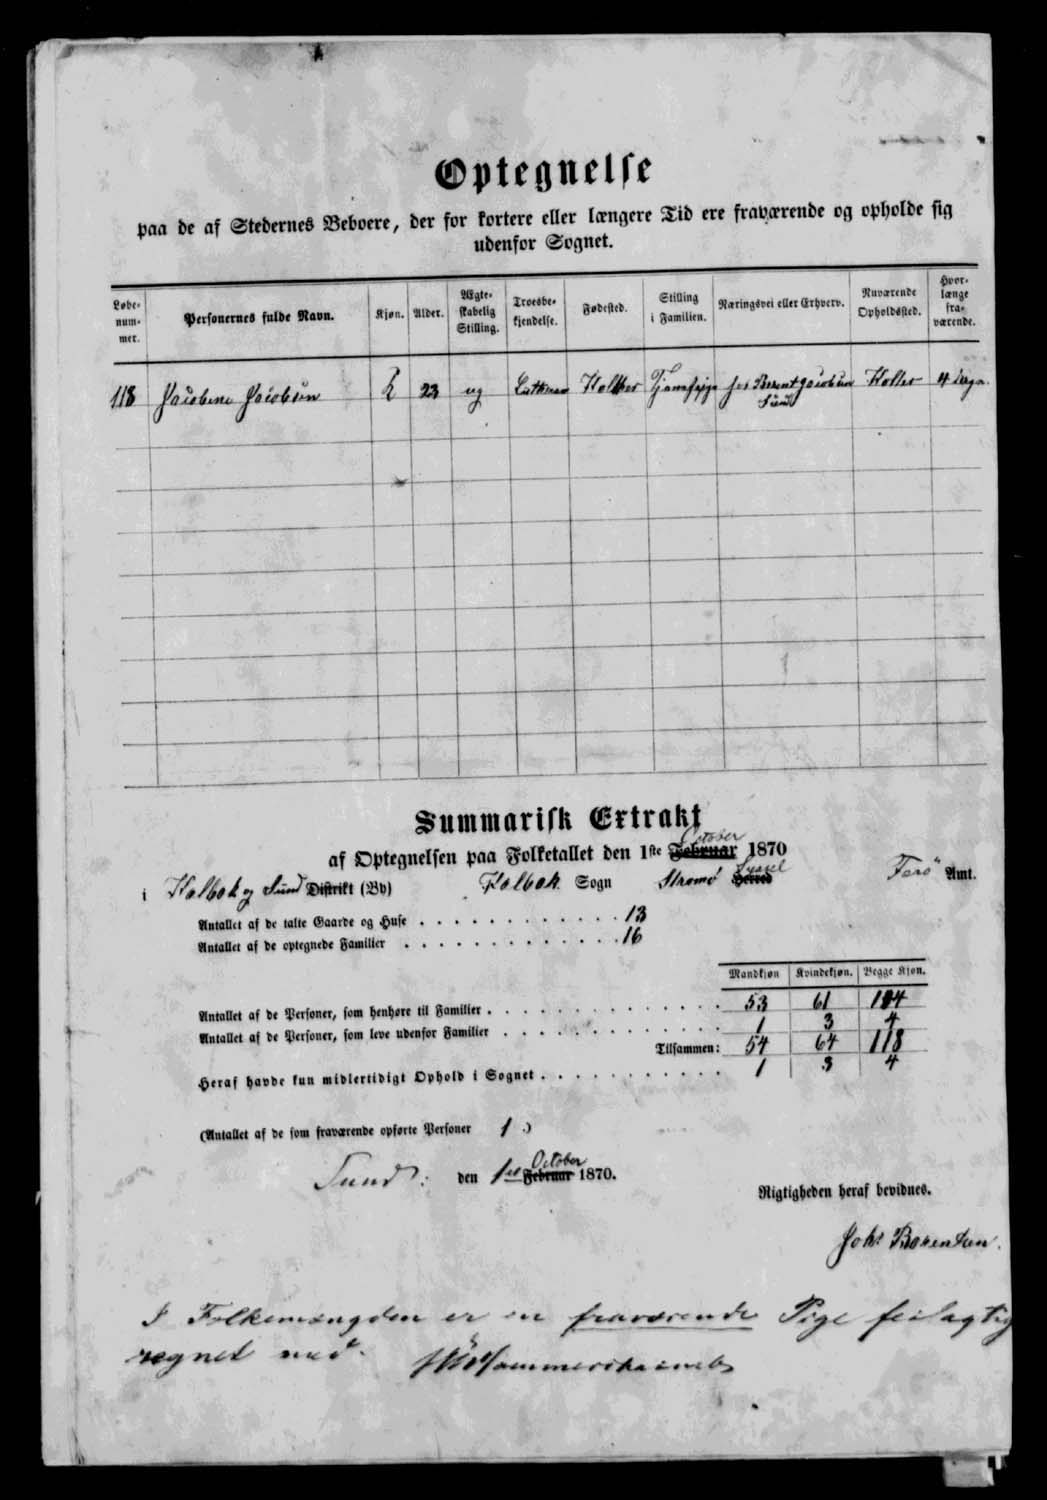 Optegnelse
paa de af Stedernes Beboere, der for kortere eller længere Tid ere fraværende og opholde sig
udenfor Sognet.
Løbe-num-mer. Personernes fulde Navn. Kjøn. Alder. Ægte-skabelig Stilling. Troesbe-kjendelse. Fødested. Stilling i Familien. Næringsvei eller Erhverv. Nuværende Opholdssted. Hvor-længe fra-værende.
118 Jacobine Jacobsen K 23 ug Kolter Kolter 4
Sund
Summarisk Extrakt
October
af Optegnelsen paa Folketallet den 1ste Februar 1870
Syssel
i Kalbak og Sund Distrikt (By) Kalbak Sogn Strømø Herred Færø Amt.
Antallet af de talte Gaarde og Huse . . . . . . . . . . . . 13
Antallet af de optegnede Familier . . . . . . . . . . . . . 16
Mandkjøn Kvindekjøn. Begge Kjøn.
Antallet af de Personer, som henhøre til Familier . . . . . . . . . . . . . . 53 61 114
Antallet af de Personer, som leve udenfor Familier . . . . . . . . . . . . . 1 3 4
Tilsammen: 54 64 118
Heraf havde kun midlertidigt Ophold i Sognet . . . . . . . . . . . 1 3 4
(Antallet af de som fraværende opførte Personer 1 .)
October
Sund: den 1ste Februar 1870.
Rigtigheden heraf bevidnes.
Johs Berentsen.
I Folkemængden er en fraværende Pige feilagtig
regnet med.